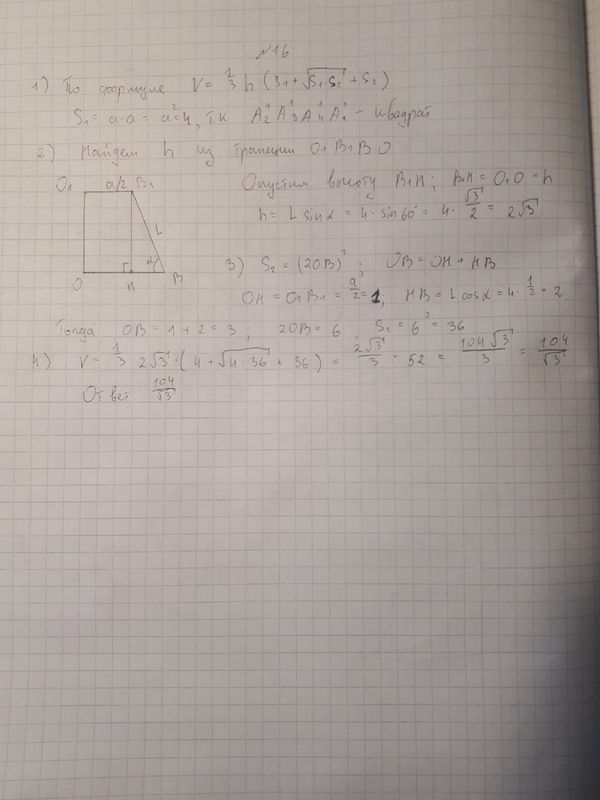 №16
1) По формуле V = 1/3 h (S₁ + √(S₁·S₂) + S₂)
S₁ = a·a = a² = 4, т.к A₂¹ A₃¹ A₄¹ A₁¹ - квадрат
2) Найдем h из трапеции O₁B₁BO
O₁ a/2 B₁
L
α
O H B
Опустим высоту B₁H; B₁H = O₁O = h
h = L sinα = 4·sin60° = 4·√3/2 = 2√3
3) S₂ = (2OB)²; OB = OH + HB
OH = O₁B₁ = a/2 = 1; HB = L cosα = 4·1/2 = 2
Тогда OB = 1 + 2 = 3; 2OB = 6; S₂ = 6² = 36
4) V = 1/3 2√3·(4 + √(4·36) + 36) = 2√3/3 · 52 = 104√3/3 = 104/√3
Ответ 104/√3